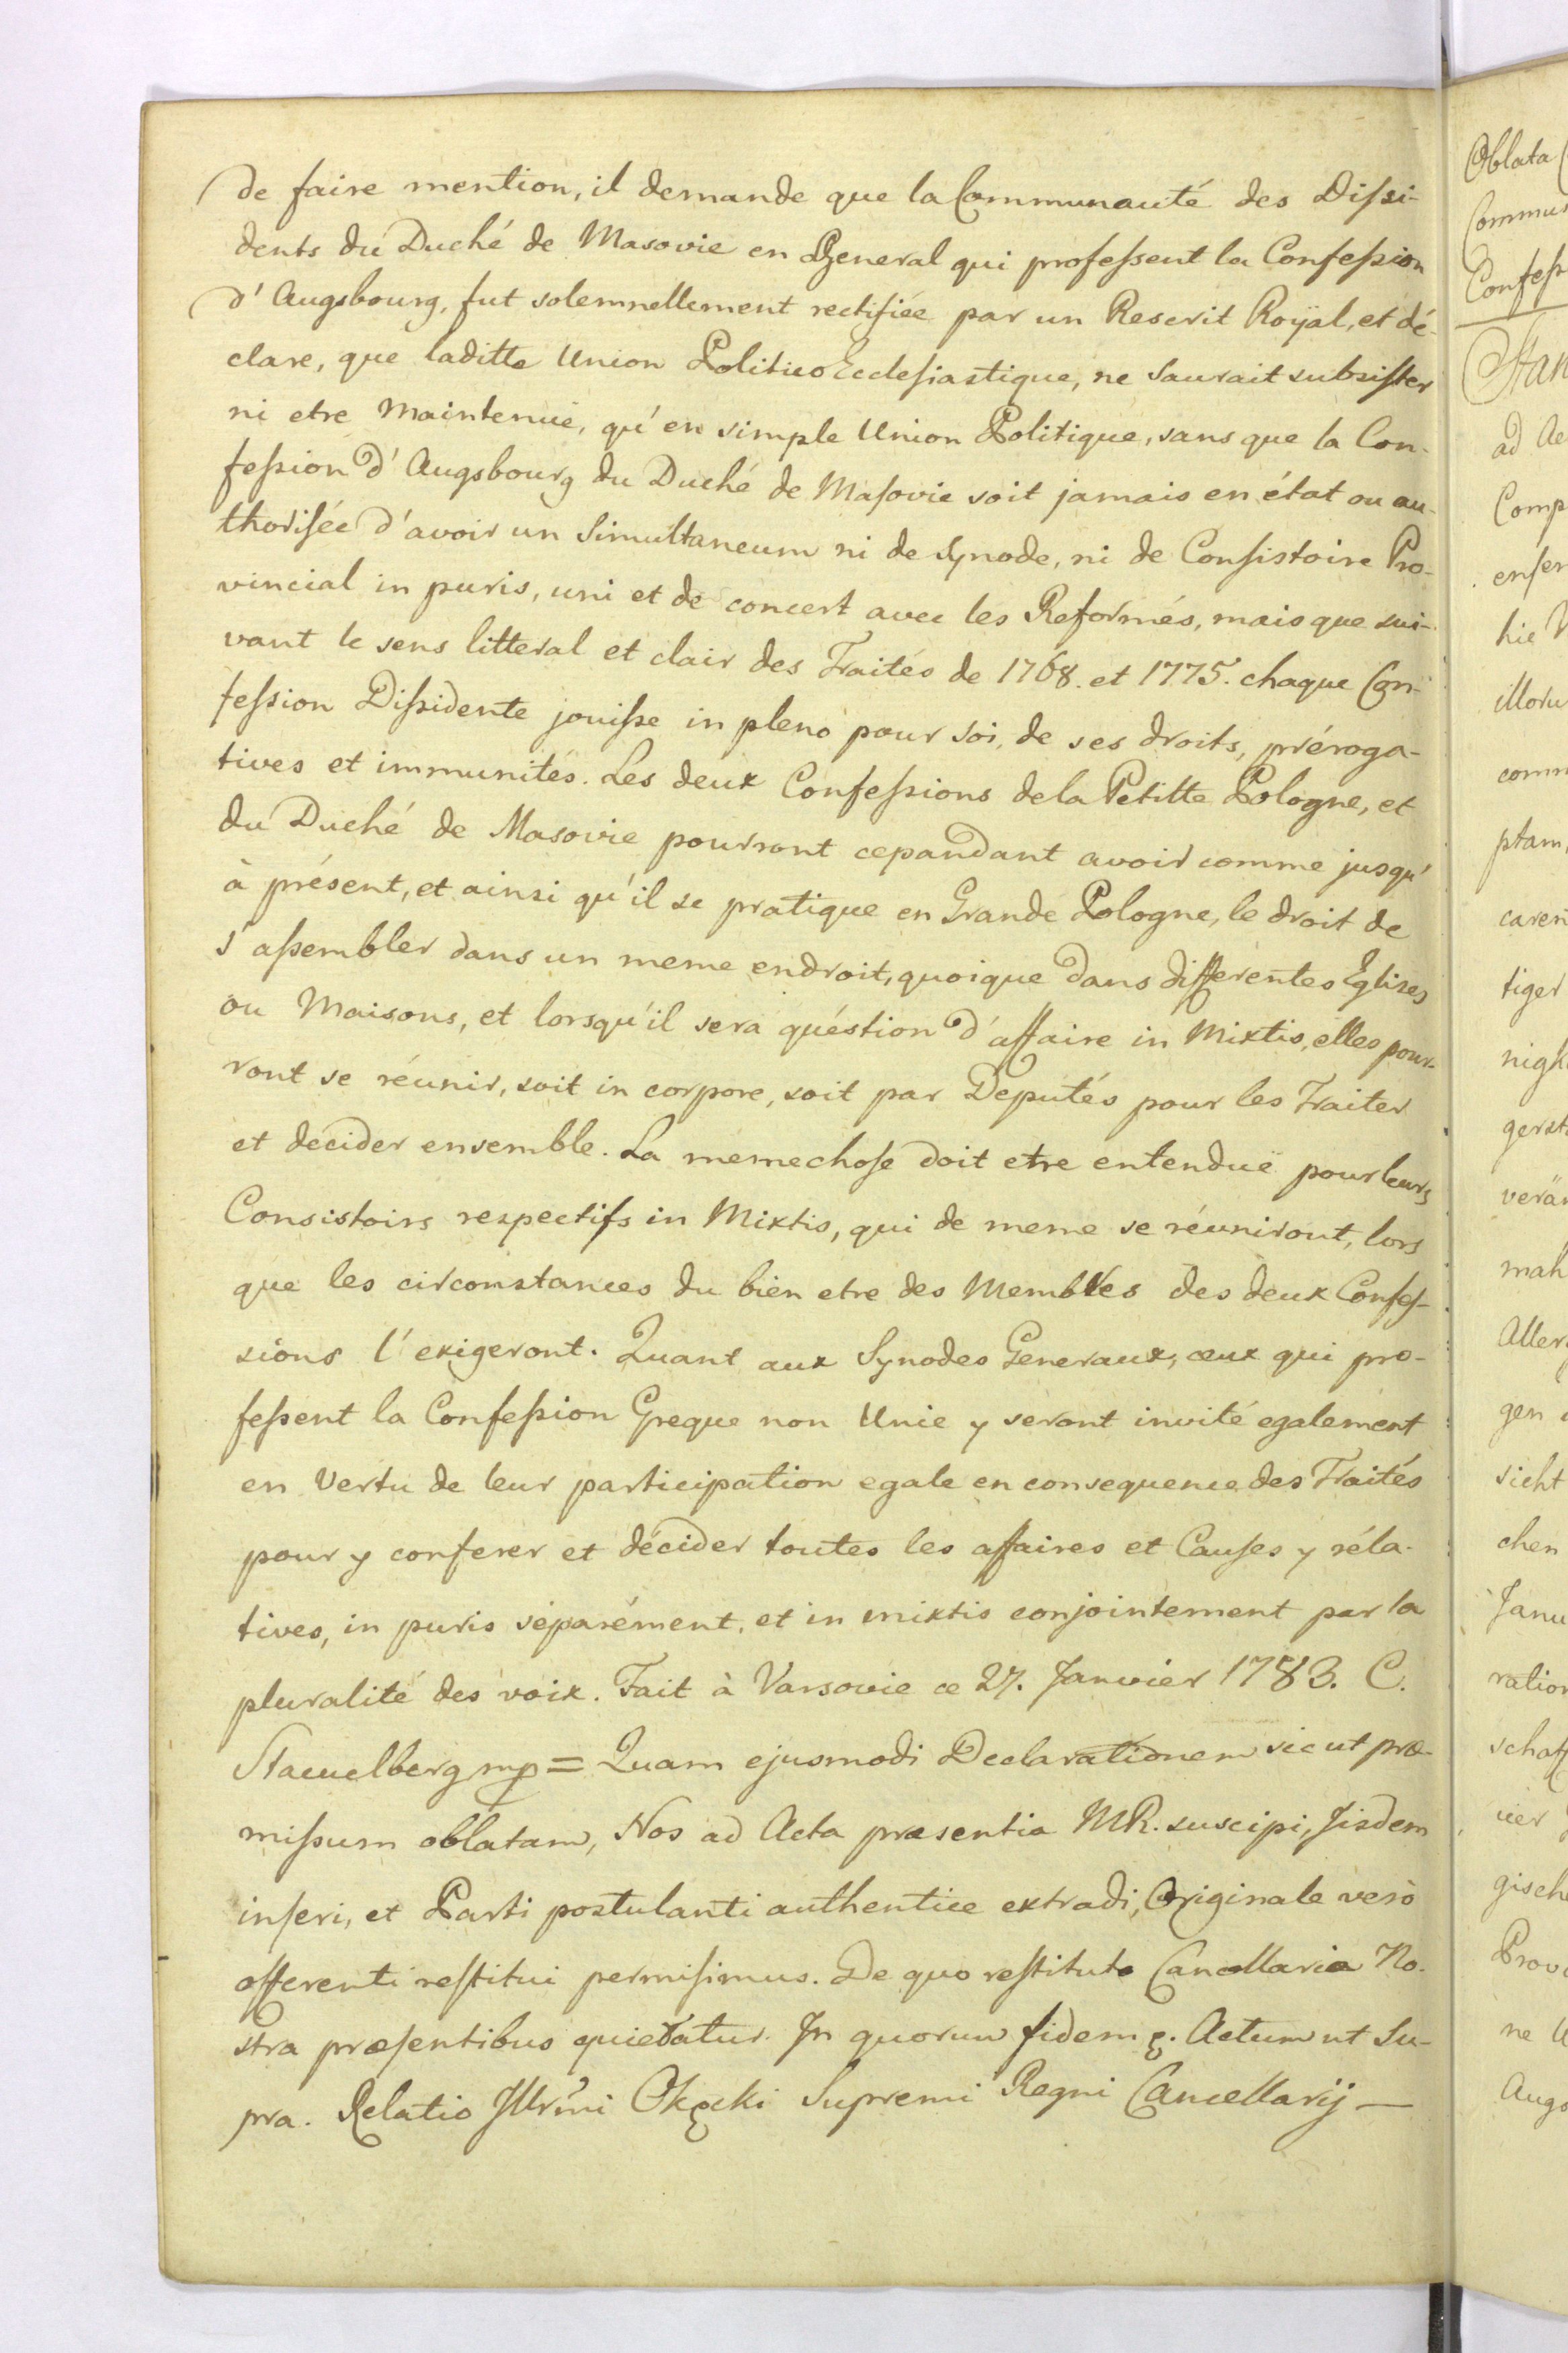 de faire mention, il demande que la Communauté des Dißi-
dents du Duché de Masovie en General qui profeßent la Confeßion
d'Augsbourg, fut solemnellement rectifiée par un Rescrit Roÿal, et dé-
clare, que laditte Union Politico Ecclesiastique, ne saurait subsister
ni etre Maintenuë, qu'en simple Union Politique, sans que la Con-
feßion d'Augsbourg du Duché de Masovie soit jamais en état ou au-
thorisée d'avoir un Simultaneum ni de Synode, ni de Consistoire Pro-
vincial in puris, uni et de concert avec les Reformés, mais que sui-
vant le sens litteral et clair des Traités de 1768. et 1775. chaque Con-
feßion Dißidente jouiße in pleno pour soi, de ses droits, préroga-
tives et immunités. Les deux Confeßions de la Petitte Pologne, et
du Duché de Masovie pourront cepandant avoir comme jusqu'
à présent, et ainsi qu'il se pratique en Grande Pologne, le droit de
s'aßembler dans un meme endroit, quoique dans differentes Eglises
ou Maisons, et lorsqu'il sera quéstion d'affaire in Mixtis, elles pour-
ront se réunir, soit in corpore, soit par Deputés pour les Traiter
et decider ensemble. La meme chose doit etre entenduë pour leurs
Consistoirs respectifs in Mixtis, qui de meme se réuniront, lors
que les circonstances du bien etre des Membres des deux Confes-
sions l'exigeront. Quant aux Synodes Generaux, ceux qui pro-
feßent la Confeßion Greque non Unie y seront invité egalement
en Vertu de leur participation egale en consequence des Traités
pour y conferer et décider toutes les affaires et Causes y réla-
tives, in puris séparément, et in mixtis conjointement par la
pluralité des voix. Fait à Varsovie ce 27. Janvier 1783. C.
Stackelberg mp = Quam ejusmodi Declarationem sicut præ-
mißum oblatam, Nos ad Acta præsentia MR. suscipi, Jisdem
inseri, et Parti postulanti authentice extradi, Originale verò
offerenti restitui permisimus. De quo restituto Cancellaria No-
stra præsentibus quietatur. In quorum fidem &. Actum ut Su-
pra. Relatio Jllrmi Okęcki Supremi Regni Cancellarij —
Oblata
Commu
Confeß
Stan
ad Ac
Comp
enser
hie
illoru
comm
ptam,
caren
tiger
nigk
gerst
verän
mah
Aller
gen
sicht
chen
Janu
ration
schaf
vier
gisch
Prov
ne
Augs